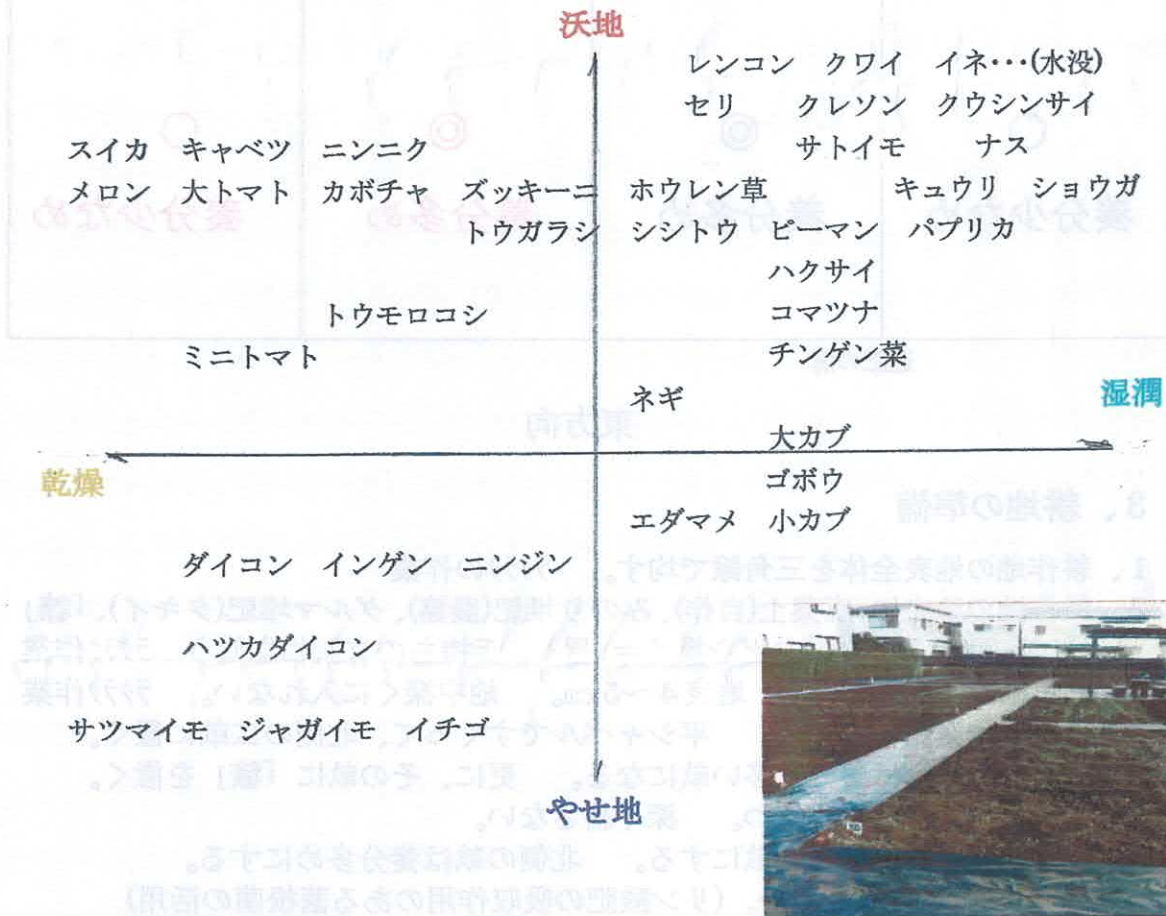 沃地
レンコン クワイ イネ･･･(水没)
セリ クレソン クウシンサイ
スイカ キャベツ ニンニク サトイモ ナス
メロン 大トマト カボチャ ズッキーニ ホウレン草 キュウリ ショウガ
トウガラシ シシトウ ピーマン パプリカ
ハクサイ
トウモロコシ コマツナ
ミニトマト チンゲン菜
ネギ 湿潤
大カブ
乾燥 ゴボウ
エダマメ 小カブ
ダイコン インゲン ニンジン
ハツカダイコン
サツマイモ ジャガイモ イチゴ
やせ地